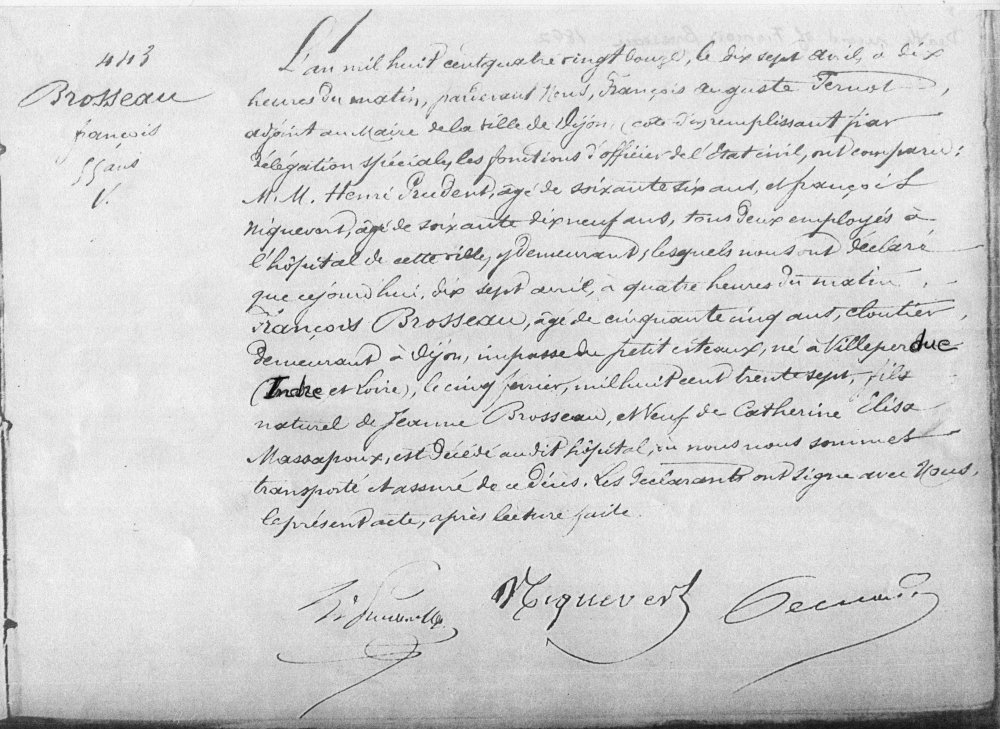 443
Brosseau
françois
55 ans
V.
L'an mil huit cent quatre vingt douze, le dix sept avril, à dix
heures du matin, pardevant Nous, François Auguste
adjoint au Maire de la ville de Dijon, (cote d'or) remplissant par
délégation spéciale, les fonctions d'officier de l'Etat civil, ont comparu:
M.M. Henri Prudent, âgé de soixante six ans, et françois
Niquevert, âgé de soixante dix neuf ans, tous deux employés à
l'hôpital de cette ville, y demeurant, lesquels nous ont déclaré
que cejourd'hui, dix sept avril, à quatre heures du matin,
François Brosseau, âgé de cinquante cinq ans, cloutier,
demeurant à Dijon, impasse du petit citeaux, né à Villeperdue
(Indre et Loire), le cinq février, mil huit cent trente sept, fils
naturel de Jeanne Brosseau, et Veuf de Catherine Elisa
Massapoux, est décédé audit hôpital, où nous nous sommes
transporté et assuré de ce décès. Les déclarants ont signé avec Nous,
le présent acte, après lecture faite.
Niquevert